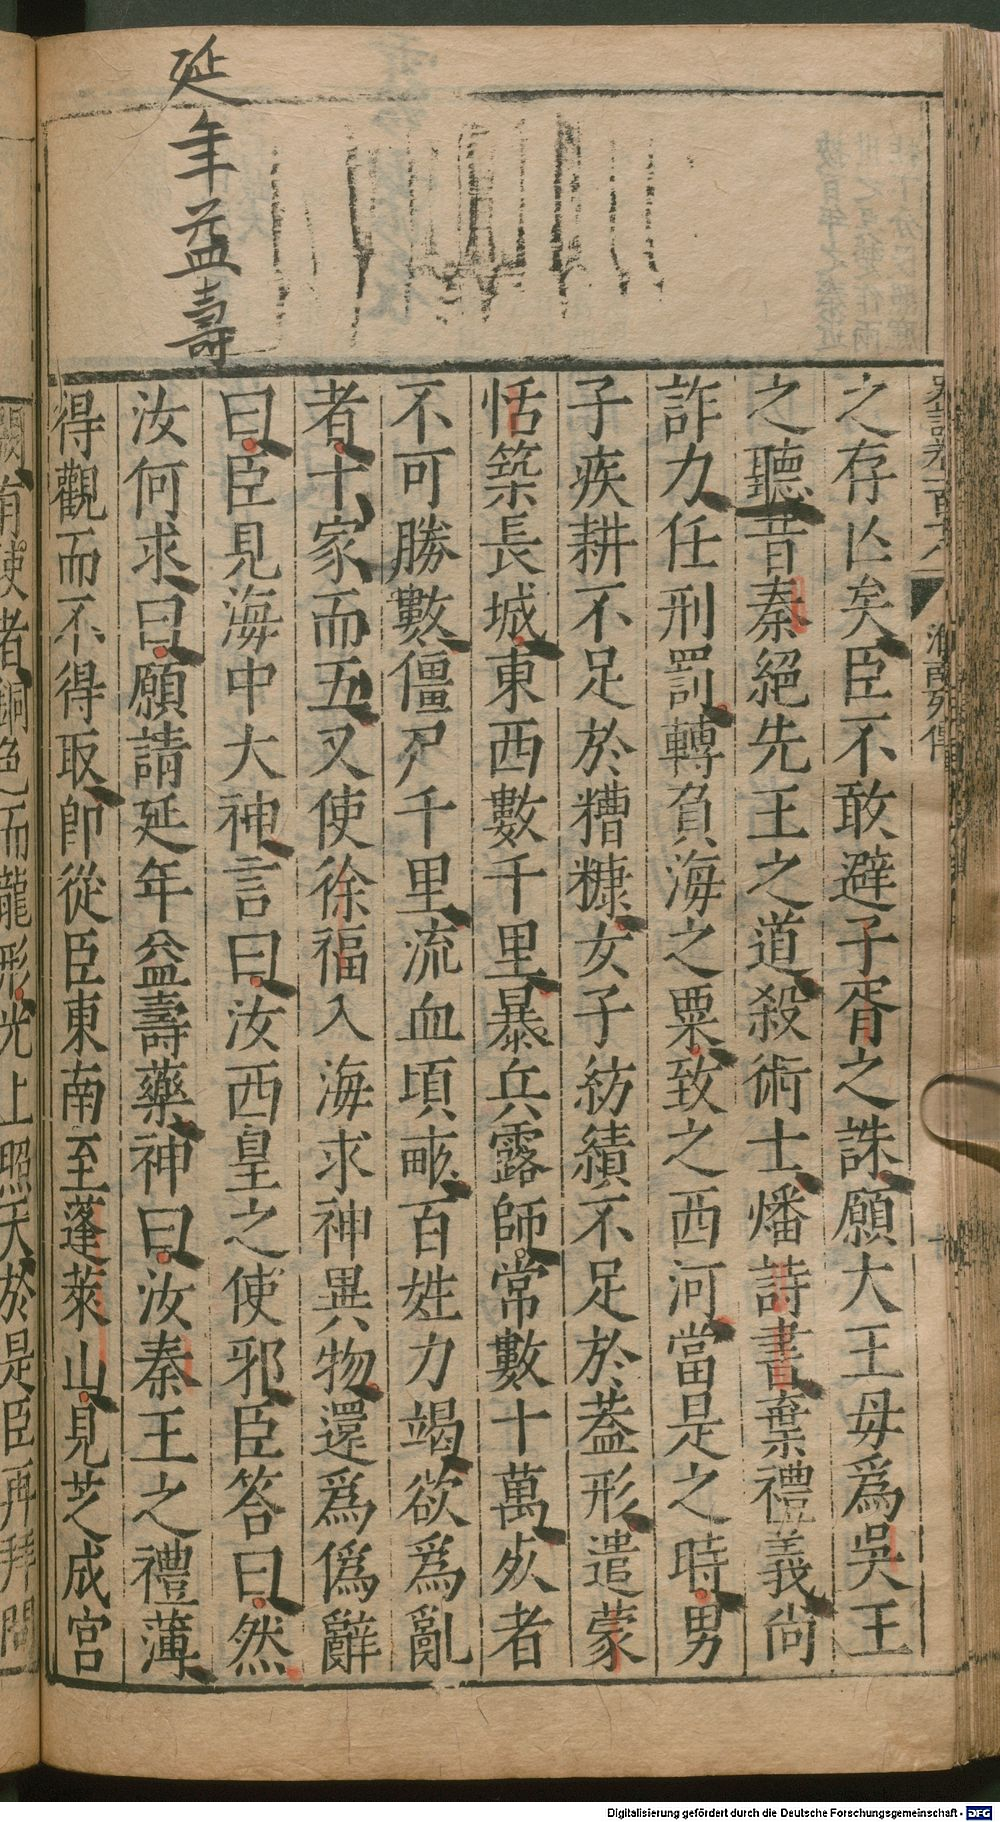 之存亾矣臣不敢避子胥之誅願大王毋爲吳王
之聽昔秦絕先王之道殺術士燔詩書棄禮義尚
詐力任刑罰轉負海之粟致之西河當是之時男
子疾耕不足於糟糠女子紡績不足於蓋形遣蒙
恬築長城東西數千里暴兵露師常數十萬死者
不可勝數僵尸千里流血頃畝百姓力竭欲爲亂
者十家而五又使徐福入海求神異物還爲僞辭
曰臣見海中大神言曰汝西皇之使邪臣答曰然
汝何求曰願請延年益壽藥神曰汝秦王之禮薄
得觀而不得取卽從臣東南至蓬萊山見芝成宮
延年益壽
有使者銅色而龍形光上照天於是臣再拜問
Digitalisierung gefördert durch die Deutsche Forschungsgemeinschaft - DFG